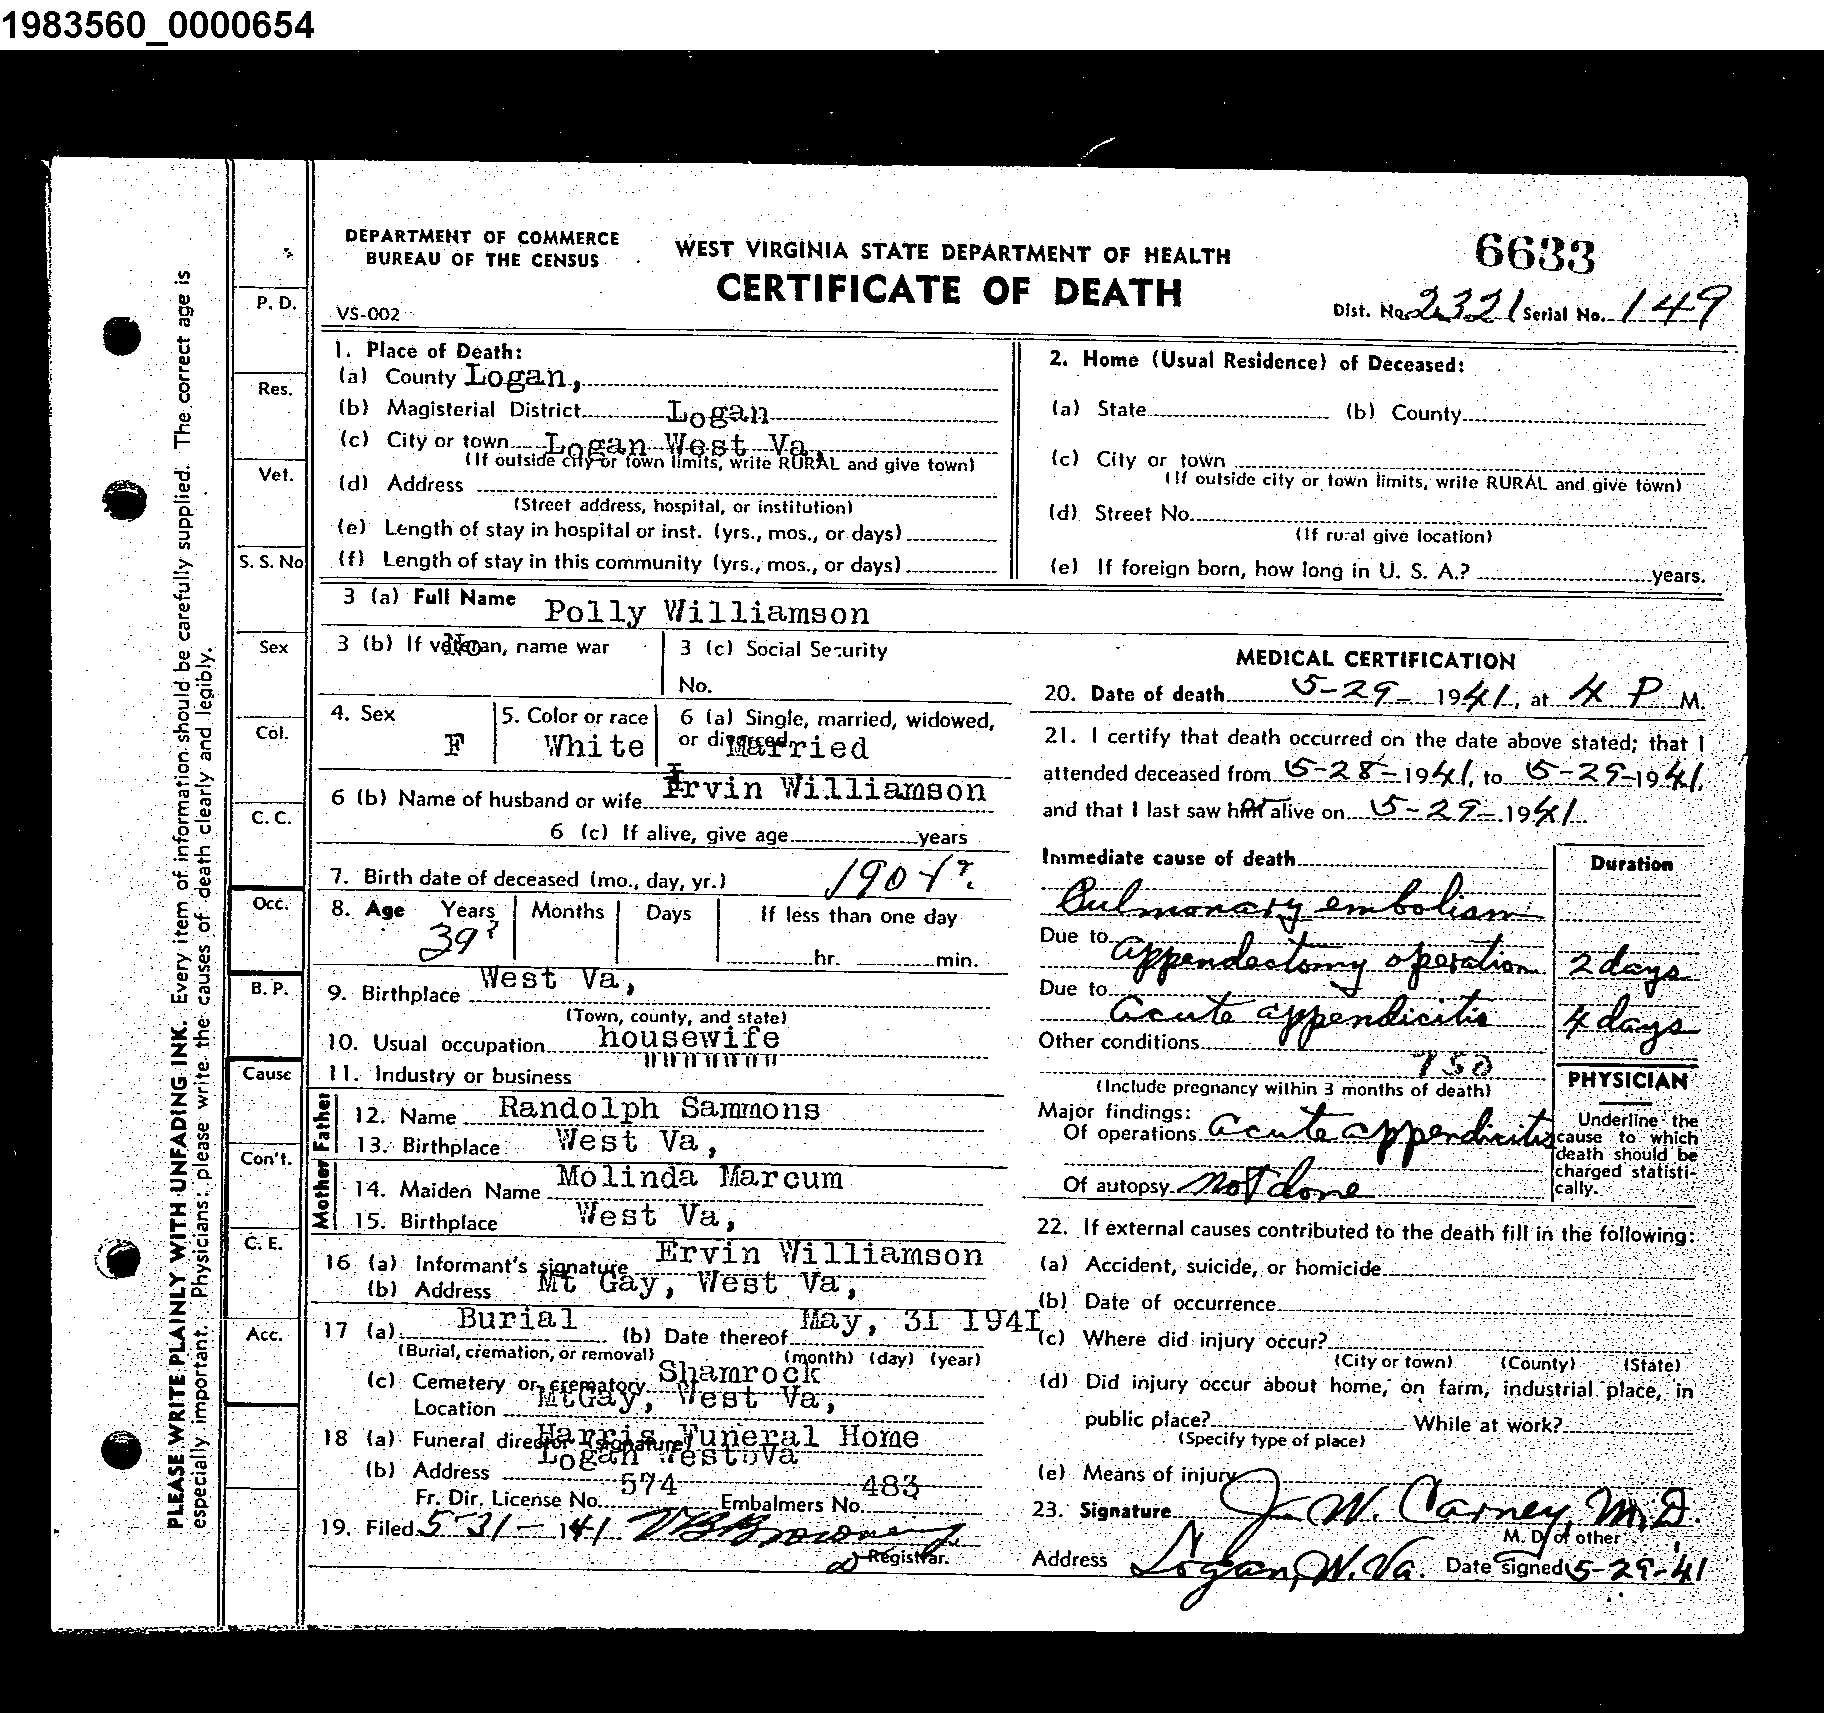 1983560_0000654
DEPARTMENT OF COMMERCE
BUREAU OF THE CENSUS
WEST VIRGINIA STATE DEPARTMENT OF HEALTH
CERTIFICATE OF DEATH
6633
VS-002
Dist. No. 2321 Serial No. 149
PLEASE WRITE PLAINLY WITH UNFADING INK. Every item of information should be carefully supplied. The correct age is
especially important. Physicians: please write the causes of death clearly and legibly.
P. D.
Res.
Vet.
S. S. No
Sex
Col.
C. C.
Occ.
B. P.
Cause
Con't.
C. E.
Acc.
1. Place of Death:
(a) County Logan,
(b) Magisterial District Logan
(c) City or town Logan West Va,
(If outside city or town limits, write RURAL and give town)
(d) Address
(Street address, hospital, or institution)
(e) Length of stay in hospital or inst. (yrs., mos., or days)
(f) Length of stay in this community (yrs., mos., or days)
2. Home (Usual Residence) of Deceased:
(a) State (b) County
(c) City or town
(If outside city or town limits, write RURAL and give town)
(d) Street No.
(If rural give location)
(e) If foreign born, how long in U. S. A.? years.
3 (a) Full Name Polly Williamson
3 (b) If veteran, name war No
3 (c) Social Security
No.
4. Sex F
5. Color or race White
6 (a) Single, married, widowed,
or divorced Married
6 (b) Name of husband or wife Ervin Williamson
6 (c) If alive, give age years
7. Birth date of deceased (mo., day, yr.) 1901?
8. Age Years Months Days If less than one day
39? hr. min.
9. Birthplace West Va,
(Town, county, and state)
10. Usual occupation housewife
11. Industry or business """""""
Father
12. Name Randolph Sammons
13. Birthplace West Va,
Mother
14. Maiden Name Molinda Marcum
15. Birthplace West Va,
16 (a) Informant's signature Ervin Williamson
(b) Address Mt Gay, West Va,
17 (a) Burial (b) Date thereof May, 31 1941
(Burial, cremation, or removal) (month) (day) (year)
(c) Cemetery or crematory Shamrock
Location MtGay, West Va,
18 (a) Funeral director (signature) Harris Funeral Home
(b) Address Logan West Va
Fr. Dir. License No. 574 Embalmers No. 483
19. Filed 5-31-1941
Registrar.
MEDICAL CERTIFICATION
20. Date of death 5-29-1941, at 4 P M.
21. I certify that death occurred on the date above stated; that I
attended deceased from 5-28-1941, to 5-29-1941,
and that I last saw her alive on 5-29-1941.
Immediate cause of death Duration
Pulmonary embolism
Due to appendectomy operation 2 days
Due to
acute appendicitis 4 days
Other conditions
(Include pregnancy within 3 months of death)
Major findings:
Of operations acute appendicitis
Of autopsy not done
PHYSICIAN
Underline the
cause to which
death should be
charged statisti-
cally.
22. If external causes contributed to the death fill in the following:
(a) Accident, suicide, or homicide
(b) Date of occurrence
(c) Where did injury occur?
(City or town) (County) (State)
(d) Did injury occur about home, on farm, industrial place, in
public place? While at work?
(Specify type of place)
(e) Means of injury
23. Signature J. W. Carney, M.D.
M. D. or other
Address Logan, W. Va. Date signed 5-29-41